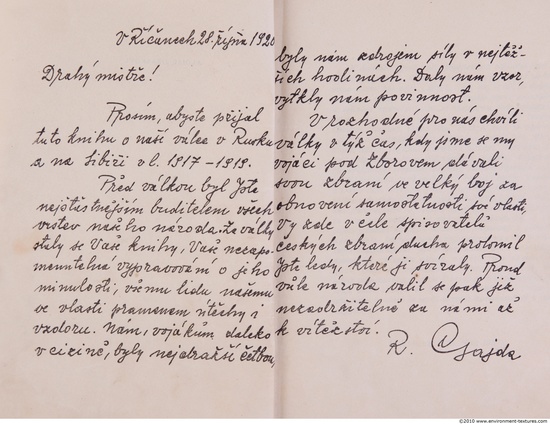 V Říčanech 28. října 1920
Drahý mistře!
Prosím, abyste přijal
tuto knihu o naší válce v Rusku
a na Sibiři v l. 1917-1919.
Před válkou byl jste
nejúčinnějším buditelem všech
vrstev našeho národa. Za války
staly se Vaše knihy, Vaše nezapo-
menutelná vypravování o jeho
minulosti, všemu lidu našemu
ve vlasti pramenem útěchy i
vzdoru. Nám, vojákům daleko
v cizině, byly nejdražší četbou,
byly nám zdrojem síly v nejtěž-
ších hodinách. Daly nám vzor,
vytkly nám povinnost.
V rozhodné pro nás chvíli
války v týž čas, kdy jsme se my
vojáci pod Zborovem dávali
svou zbraní ve velký boj za
obnovení samostatnosti své vlasti,
Vy zde v čele spisovatelů
českých zbraní ducha prolomil
jste ledy, které ji svíraly. Proud
vůle národa valil se pak již
nezadržitelně za námi až
k vítězství.
R. Gajda
©2010 www.environment-textures.com